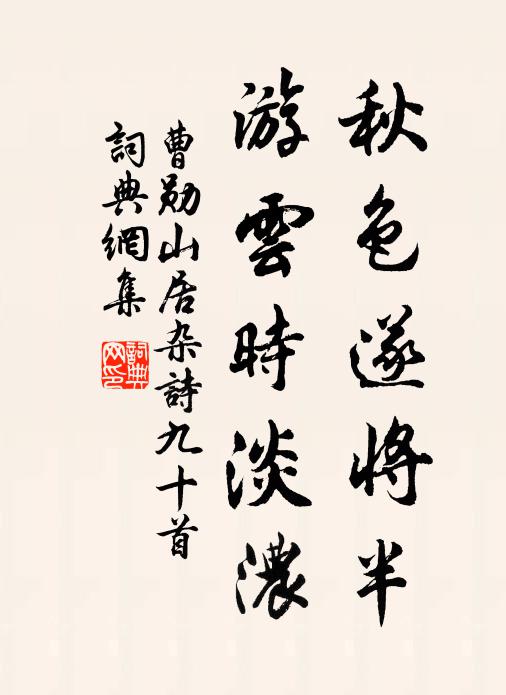 秋色遂将半
游雲時淡濃
曹勛山居杂詩九十首
詞典網集
詞典網印